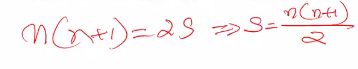 n(n+1)=2S ⇒ S= n(n+1)/2